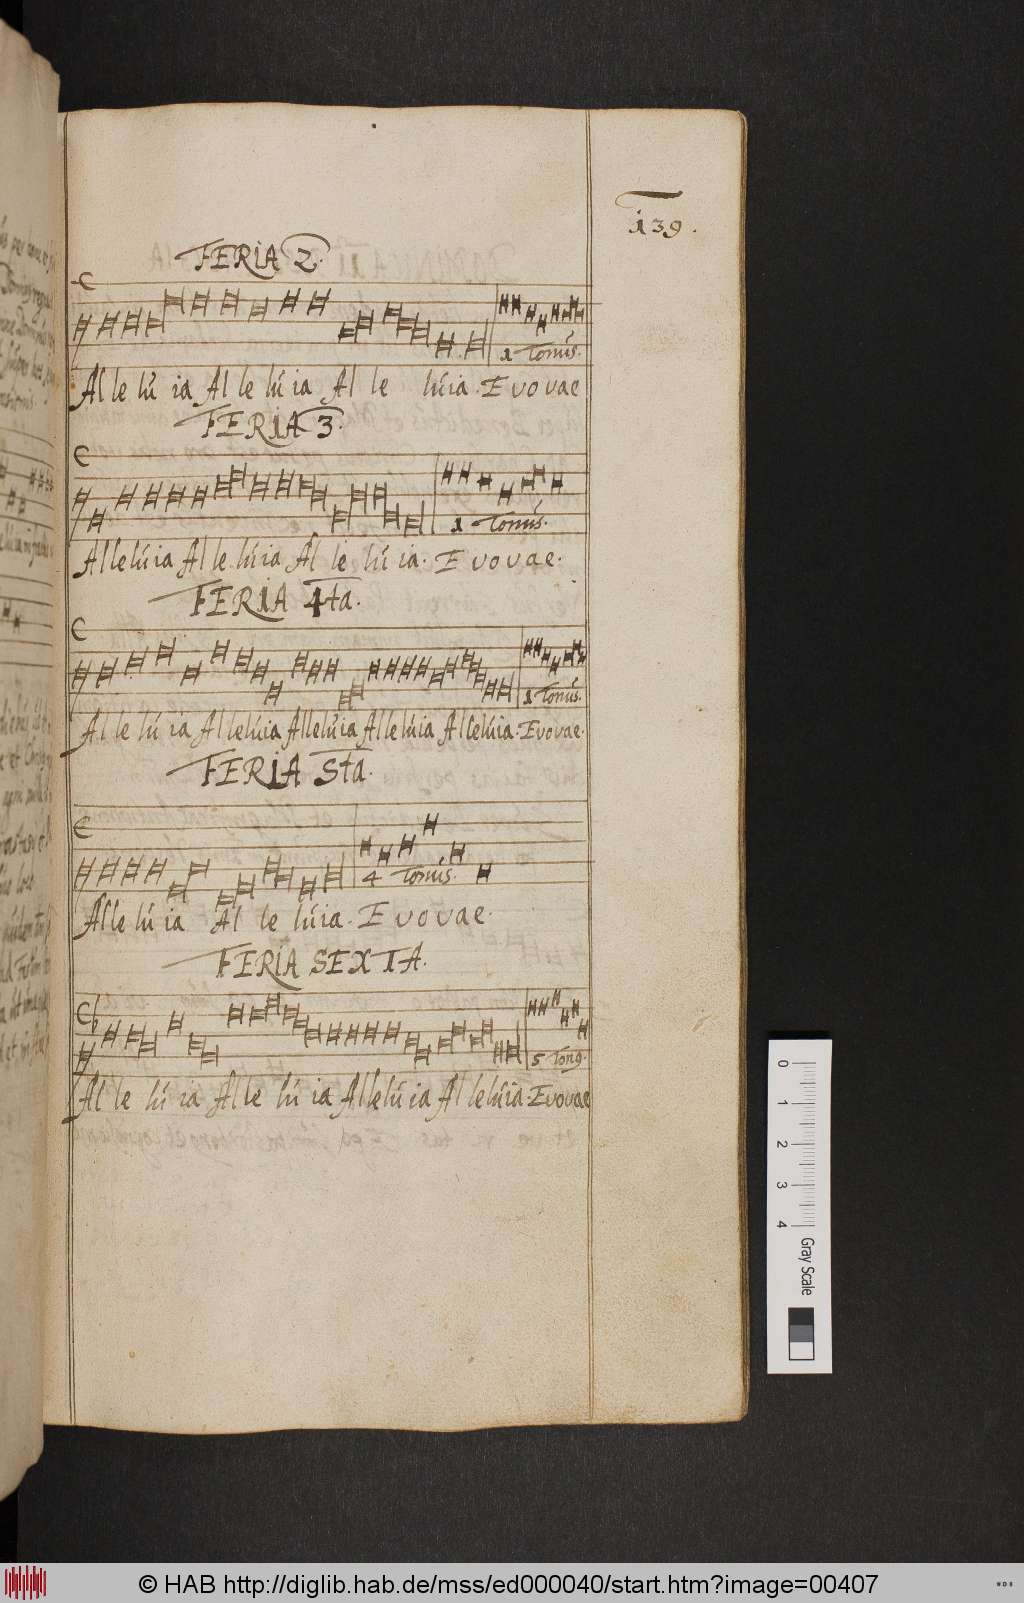 139.
FERIA 2.
1 Tonus.
Al le lu ia Al le lu ia Al le luia. Evovae
FERIA 3.
1 Tonus.
Alleluia Al le luia Al le lu ia. Evovae.
FERIA 4ta.
1 Tonus.
Al le lu ia Alleluia Alleluia Alleluia Alleluia. Evovae.
FERIA 5ta.
4 Tonus.
Alle lu ia Al le luia. Evovae.
FERIA SEXTA.
5 Ton9.
Al le lu ia Alle lu ia Alleluia Al leluia. Evovae
0 1 2 3 4 Gray Scale
© HAB http://diglib.hab.de/mss/ed000040/start.htm?image=00407